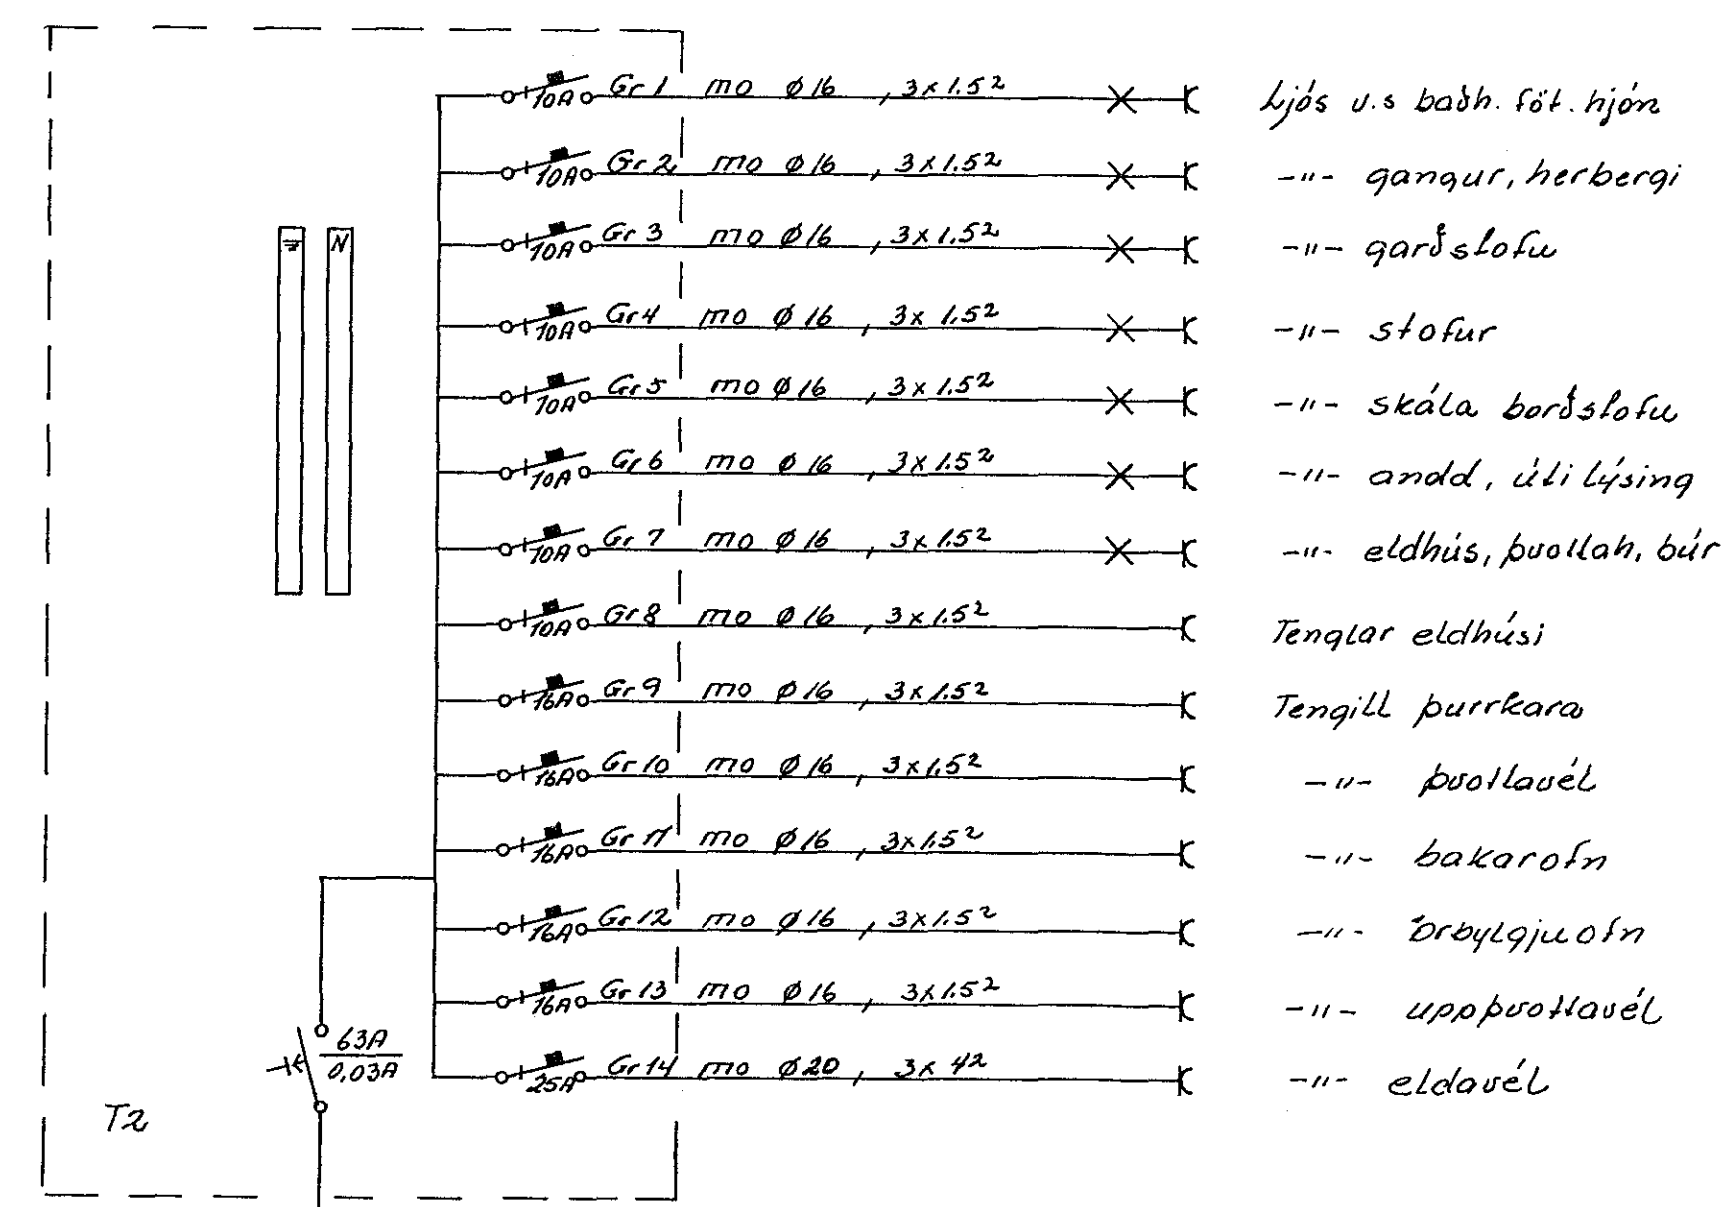 10A Gr 1 mo ø 16 , 3 x 1.5² Ljós v.s baðh. föt. hjón
10A Gr 2 mo ø 16 , 3 x 1.5² -"- gangur, herbergi
10A Gr 3 mo ø 16 , 3 x 1.5² -"- garðstofu
N
10A Gr 4 mo ø 16 , 3 x 1.5² -"- stofur
10A Gr 5 mo ø 16 , 3 x 1.5² -"- skála borðstofu
10A Gr 6 mo ø 16 , 3 x 1.5² -"- andd, úti lýsing
10A Gr 7 mo ø 16 , 3 x 1.5² -"- eldhús, þvottah, búr
10A Gr 8 mo ø 16 , 3 x 1.5² Tenglar eldhúsi
16A Gr 9 mo ø 16 , 3 x 1.5² Tengill þurrkara
16A Gr 10 mo ø 16 , 3 x 1.5² -"- þvottavél
16A Gr 11 mo ø 16 , 3 x 1.5² -"- bakarofn
16A Gr 12 mo ø 16 , 3 x 1.5² -"- örbylgjuofn
16A Gr 13 mo ø 16 , 3 x 1.5² -"- uppþvottavél
25A Gr 14 mo ø 20 , 3 x 4² -"- eldavél
63A
0,03A
T2